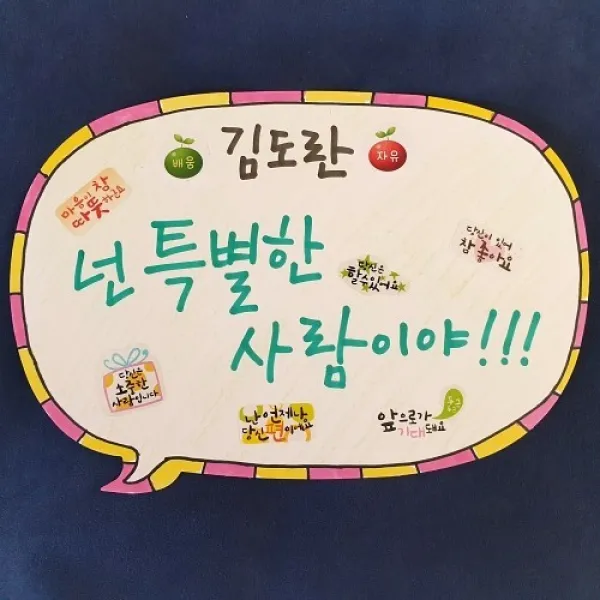 배움 김도란 자유
마음이 참
따뜻하군요
넌 특별한
당신이 있어
참 좋아요
당신은
할 수 있어요
사람이야!!!
당신은
소중한
사람입니다
난 언제나
당신편이에요
앞으로가
기대돼요